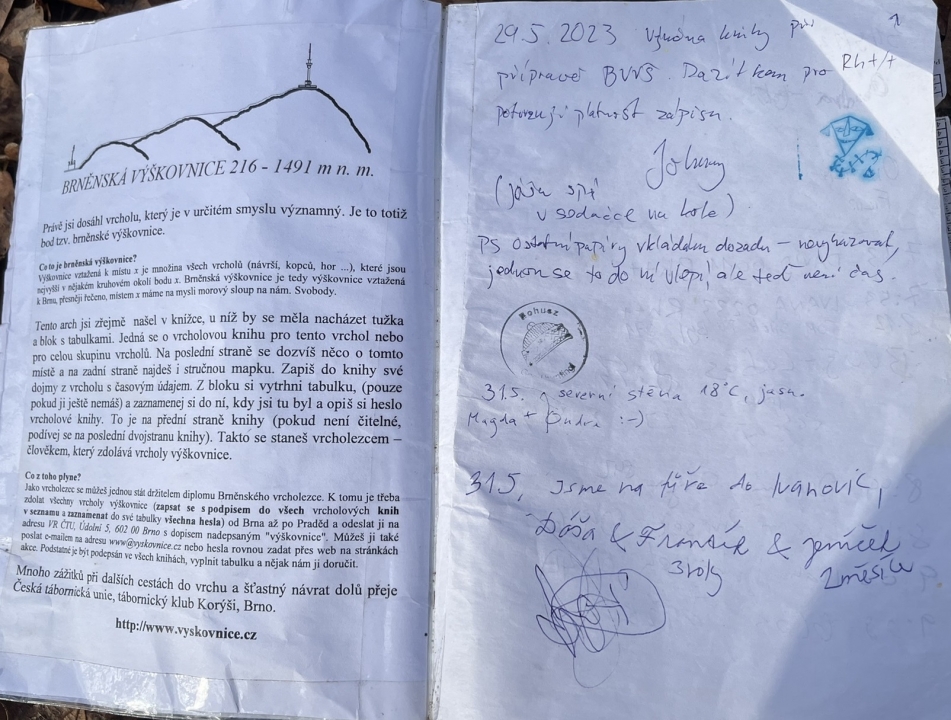 BRNĚNSKÁ VÝŠKOVNICE 216 - 1491 m n. m.
Právě jsi dosáhl vrcholu, který je v určitém smyslu významný. Je to totiž
bod tzv. brněnské výškovnice.
Co to je brněnská výškovnice?
Výškovnice vztažená k místu x je množina všech vrcholů (návrší, kopců, hor ...), které jsou
nejvyšší v nějakém kruhovém okolí bodu x. Brněnská výškovnice je tedy výškovnice vztažená
k Brnu, přesněji řečeno, místem x máme na mysli morový sloup na nám. Svobody.
Tento arch jsi zřejmě našel v knížce, u níž by se měla nacházet tužka
a blok s tabulkami. Jedná se o vrcholovou knihu pro tento vrchol nebo
pro celou skupinu vrcholů. Na poslední straně se dozvíš něco o tomto
místě a na zadní straně najdeš i stručnou mapku. Zapiš do knihy své
dojmy z vrcholu s časovým údajem. Z bloku si vytrhni tabulku, (pouze
pokud ji ještě nemáš) a zaznamenej si do ní, kdy jsi tu byl a opiš si heslo
vrcholové knihy. To je na přední straně knihy (pokud není čitelné,
podívej se na poslední dvojstranu knihy). Takto se staneš vrcholezcem –
člověkem, který zdolává vrcholy výškovnice.
Co z toho plyne?
Jako vrcholezec se můžeš jednou stát držitelem diplomu Brněnského vrcholezce. K tomu je třeba
zdolat všechny vrcholy výškovnice (zapsat se s podpisem do všech vrcholových knih
v seznamu a zaznamenat do své tabulky všechna hesla) od Brna až po Praděd a odeslat ji na
adresu VR ČTU, Údolní 5, 602 00 Brno s dopisem nadepsaným "výškovnice". Můžeš ji také
poslat e-mailem na adresu www@vyskovnice.cz nebo hesla rovnou zadat přes web na stránkách
akce. Podstatné je být podepsán ve všech knihách, vyplnit tabulku a nějak nám ji doručit.
Mnoho zážitků při dalších cestách do vrchu a šťastný návrat dolů přeje
Česká tábornická unie, tábornický klub Korýši, Brno.
http://www.vyskovnice.cz
1
29.5.2023 Výměna knihy při
přípravě BVVŠ. Razítkem pro Rh+/+
potvrzuji platnost zápisu.
(jáša spí
v sedačce na kole)
PS Ostatní papíry vkládám dozadu – nevyhazovat,
jednou se to do ní vlepí, ale teď není čas.
Bohusz
31.5. severní stěna 18°C, jasno.
Magda + Ondra :-)
31.5. Jsme na túře do Ivanovic,
Dáša & Frantík & Jeníček
3 roky 2 měsíce